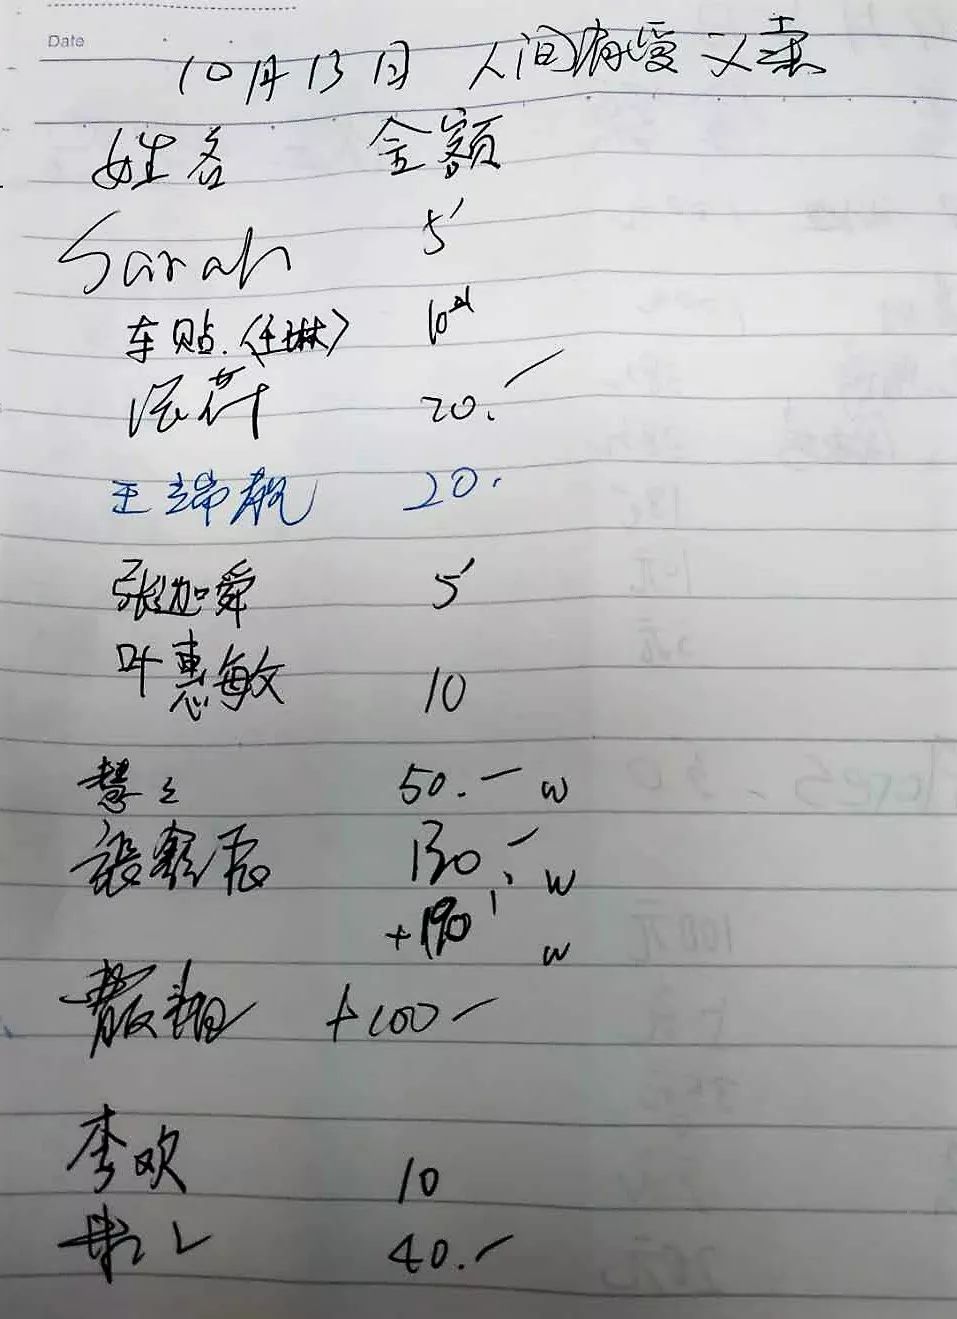 Date
10月13日 人间有爱 义卖
姓名 金额
Sarah 5
车贴.(任琳) 10元
20.
王瑞 20.
张迦舜 5
叶惠敏 10
慧 50.- w
130.- w
+190 w
+100-
李欢 10
40.-